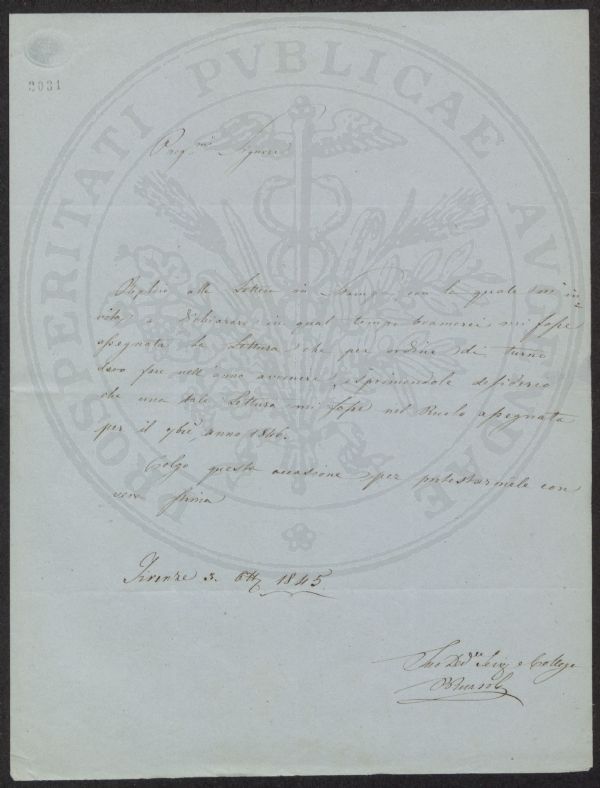 3031
PROSPERITATI PVBLICAE AVGENDAE
Preg.mo Signore
Replico alla Lettera in Stampa con la quale son in=
vitato a dichiarare in qual tempo bramerei mi fosse
assegnata la Lettura che per ordine di turno
devo fare nell'anno avvenire, esprimendole desiderio
che una tale Lettura mi fosse nel Ruolo assegnata
per il 9bre anno 1846.
Colgo questa occasione per protestarmele con
vera stima
Firenze 3. Ott. 1845.
Suo Dev. Serv. e Collega